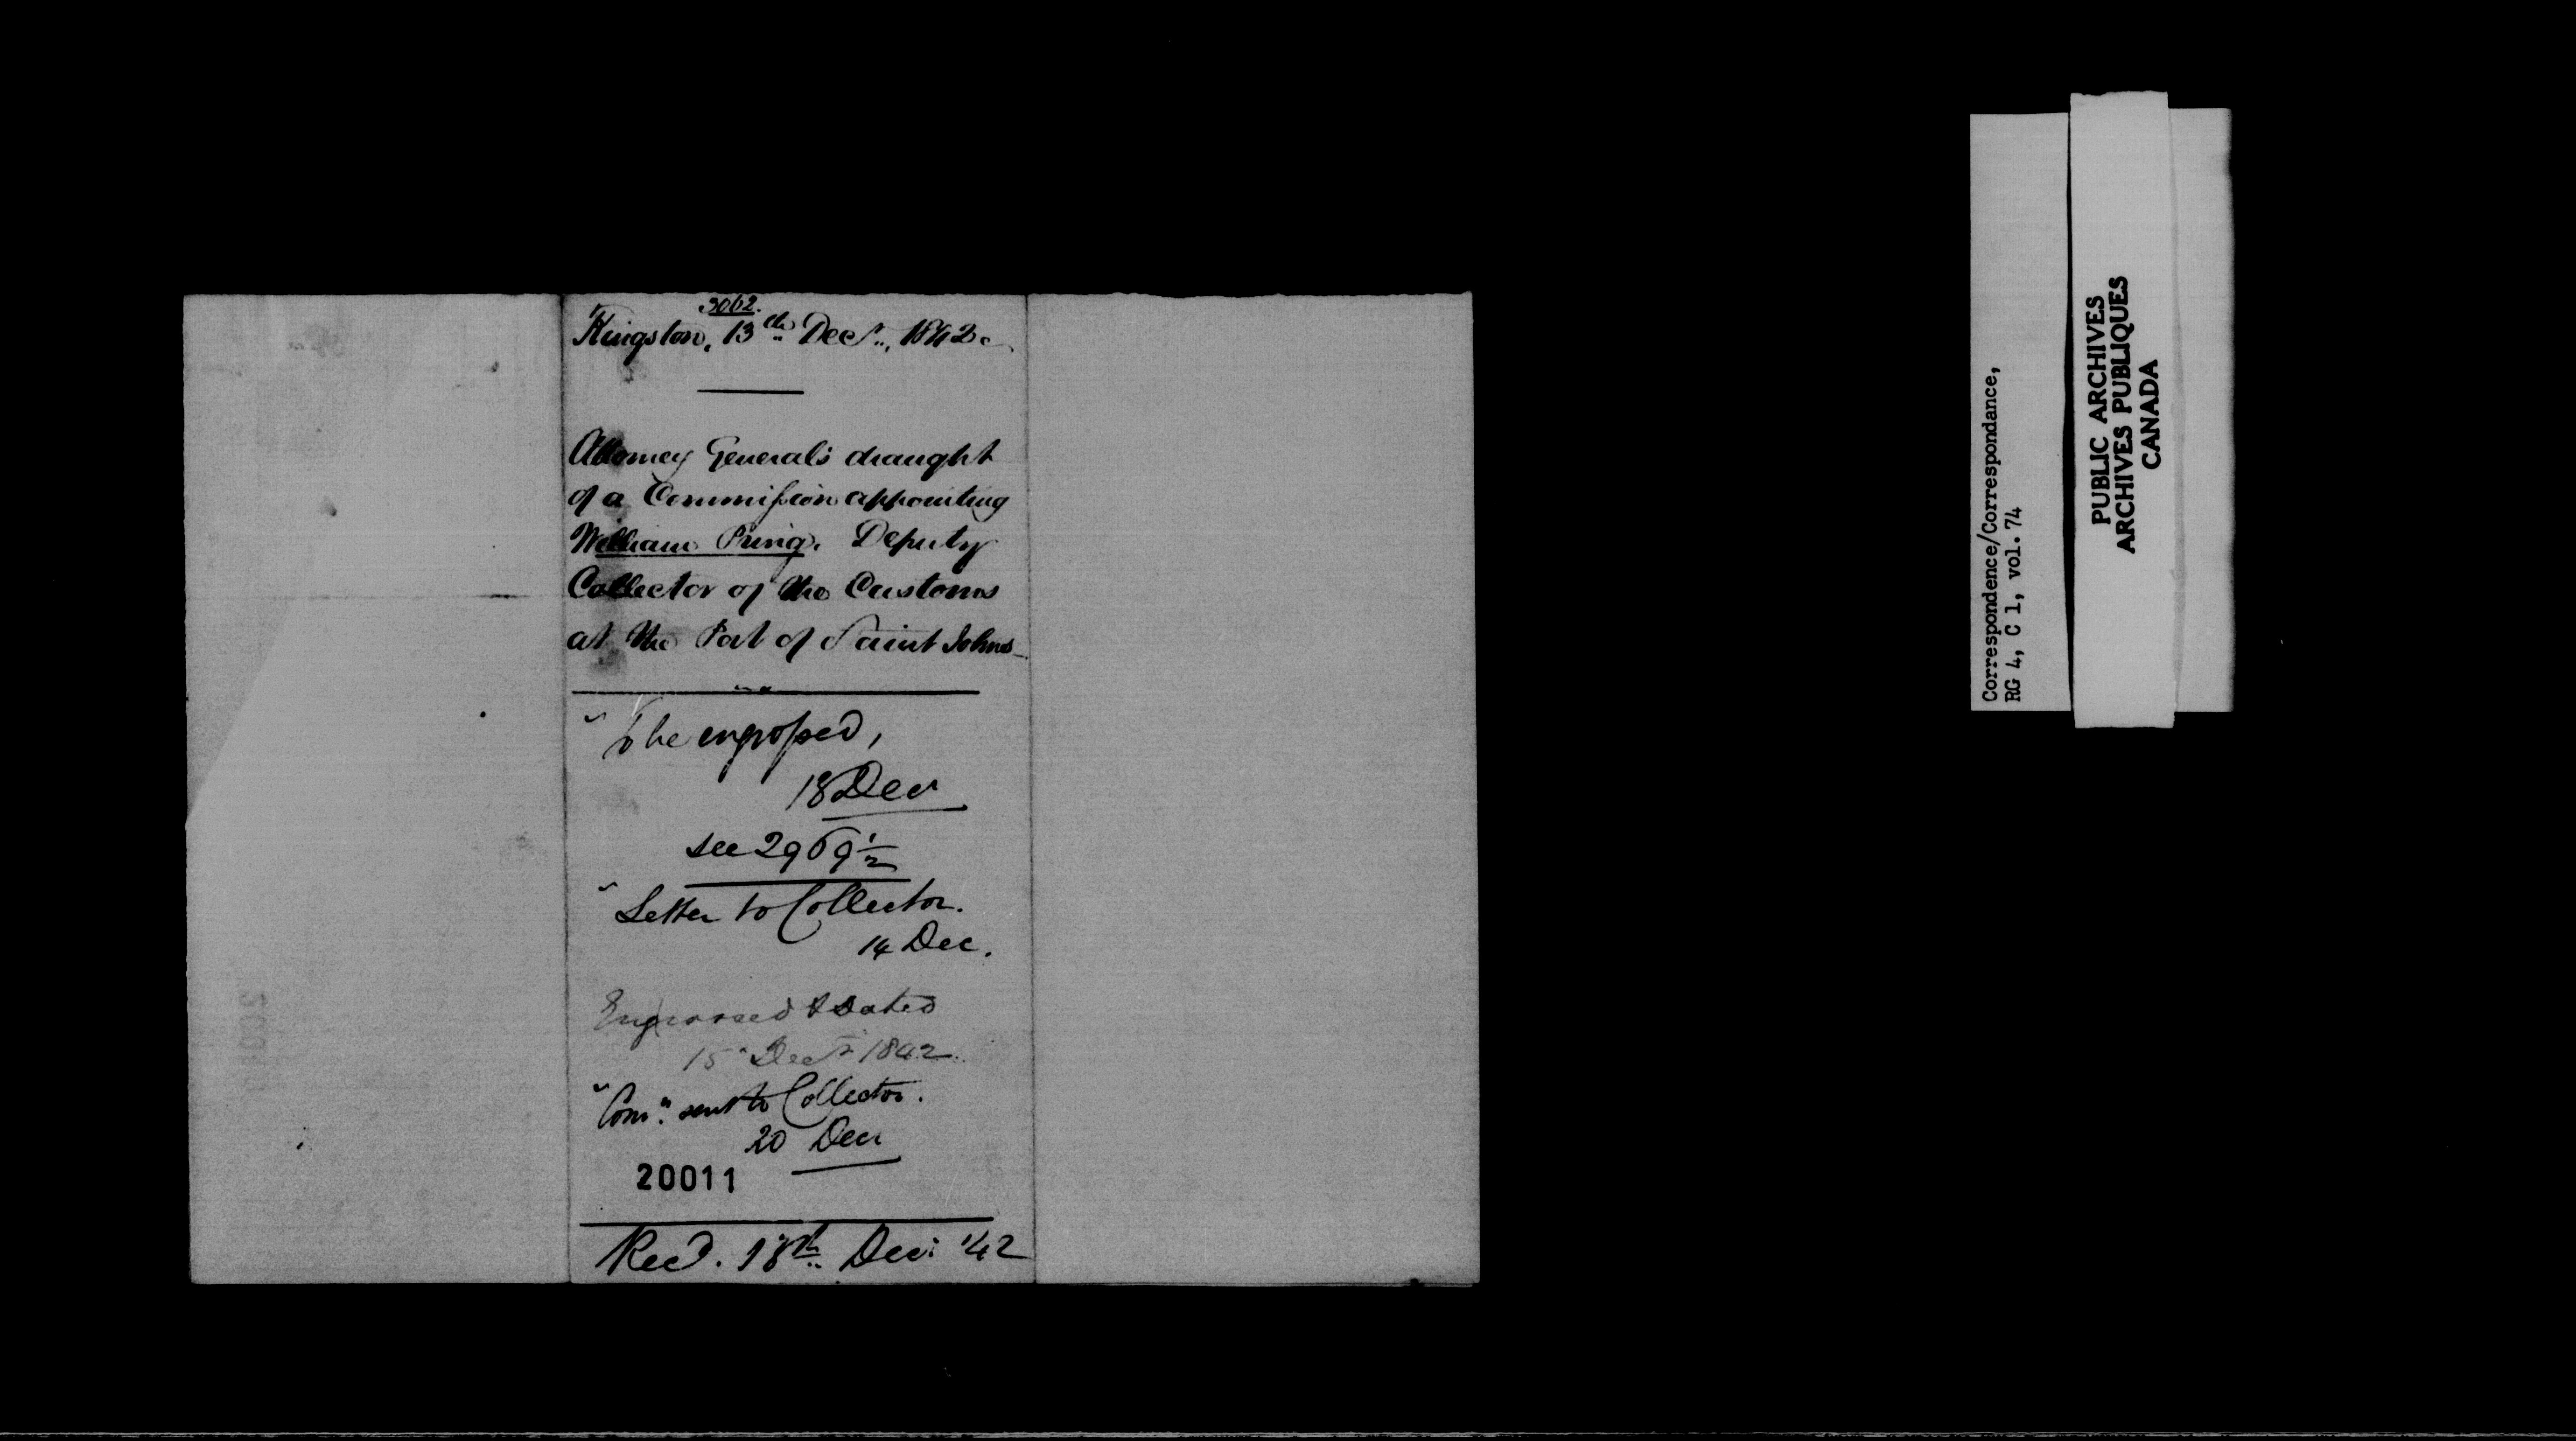 3062.
Kingston, 13th Decr., 1842.
Attorney General's draught
of a Commission appointing
William Pring, Deputy
Collector of the Customs
at the Port of Saint Johns
To be engrossed,
13 Decr
see 2969½
Letter to Collector.
14 Dec.
Engrossed & Dated
15 Decr 1842
Comn. sent to Collector.
20 Decr
20011
Recd. 13th Decr '42
Correspondence/Correspondance,
RG 4, C 1, vol. 74
PUBLIC ARCHIVES
ARCHIVES PUBLIQUES
CANADA